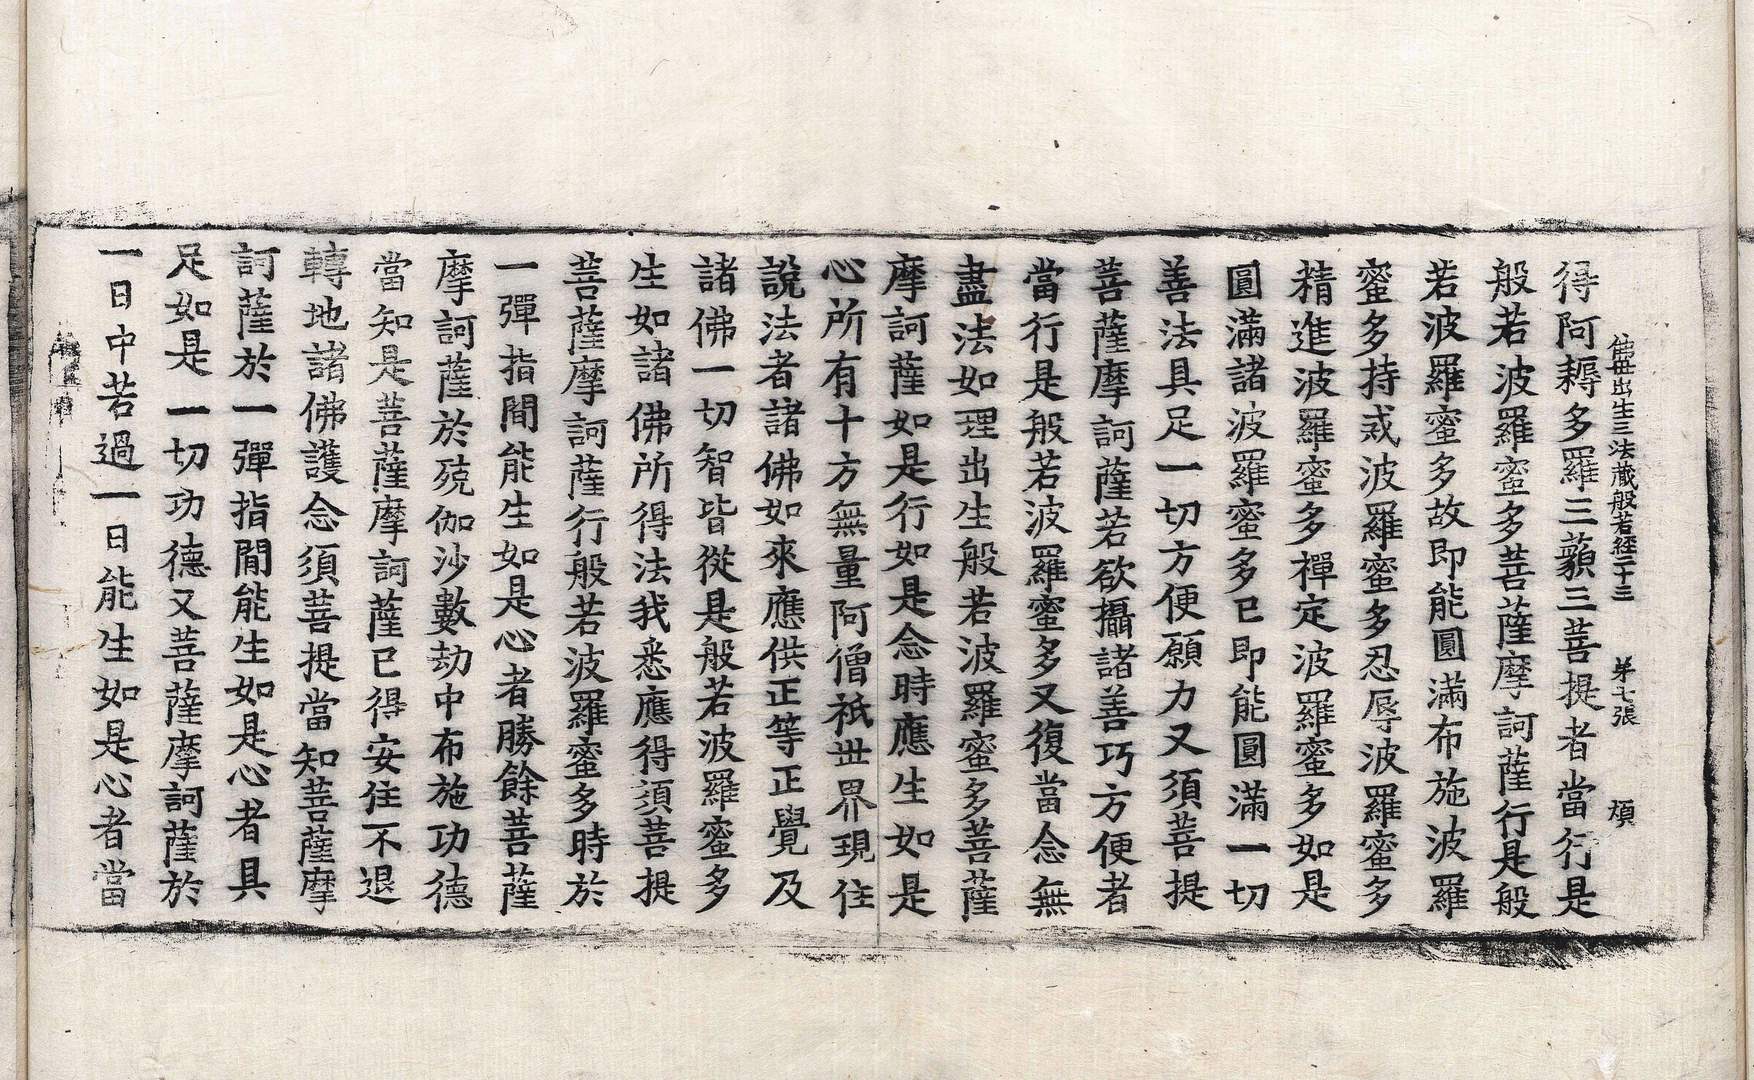 佛母出生三法藏般若經二十三 第七張 煩
得阿耨多羅三藐三菩提者當行是
般若波羅蜜多菩薩摩訶薩行是般
若波羅蜜多故即能圓滿布施波羅
蜜多持戒波羅蜜多忍辱波羅蜜多
精進波羅蜜多禪定波羅蜜多如是
圓滿諸波羅蜜多已即能圓滿一切
善法具足一切方便願力又須菩提
菩薩摩訶薩若欲攝諸善巧方便者
當行是般若波羅蜜多又復當念無
盡法如理出生般若波羅蜜多菩薩
摩訶薩如是行如是念時應生如是
心所有十方無量阿僧祇世界現住
說法者諸佛如來應供正等正覺及
諸佛一切智皆從是般若波羅蜜多
生如諸佛所得法我悉應得須菩提
菩薩摩訶薩行般若波羅蜜多時於
一彈指間能生如是心者勝餘菩薩
摩訶薩於殑伽沙數劫中布施功德
當知是菩薩摩訶薩已得安住不退
轉地諸佛護念須菩提當知菩薩摩
訶薩於一彈指間能生如是心者具
足如是一切功德又菩薩摩訶薩於
一日中若過一日能生如是心者當